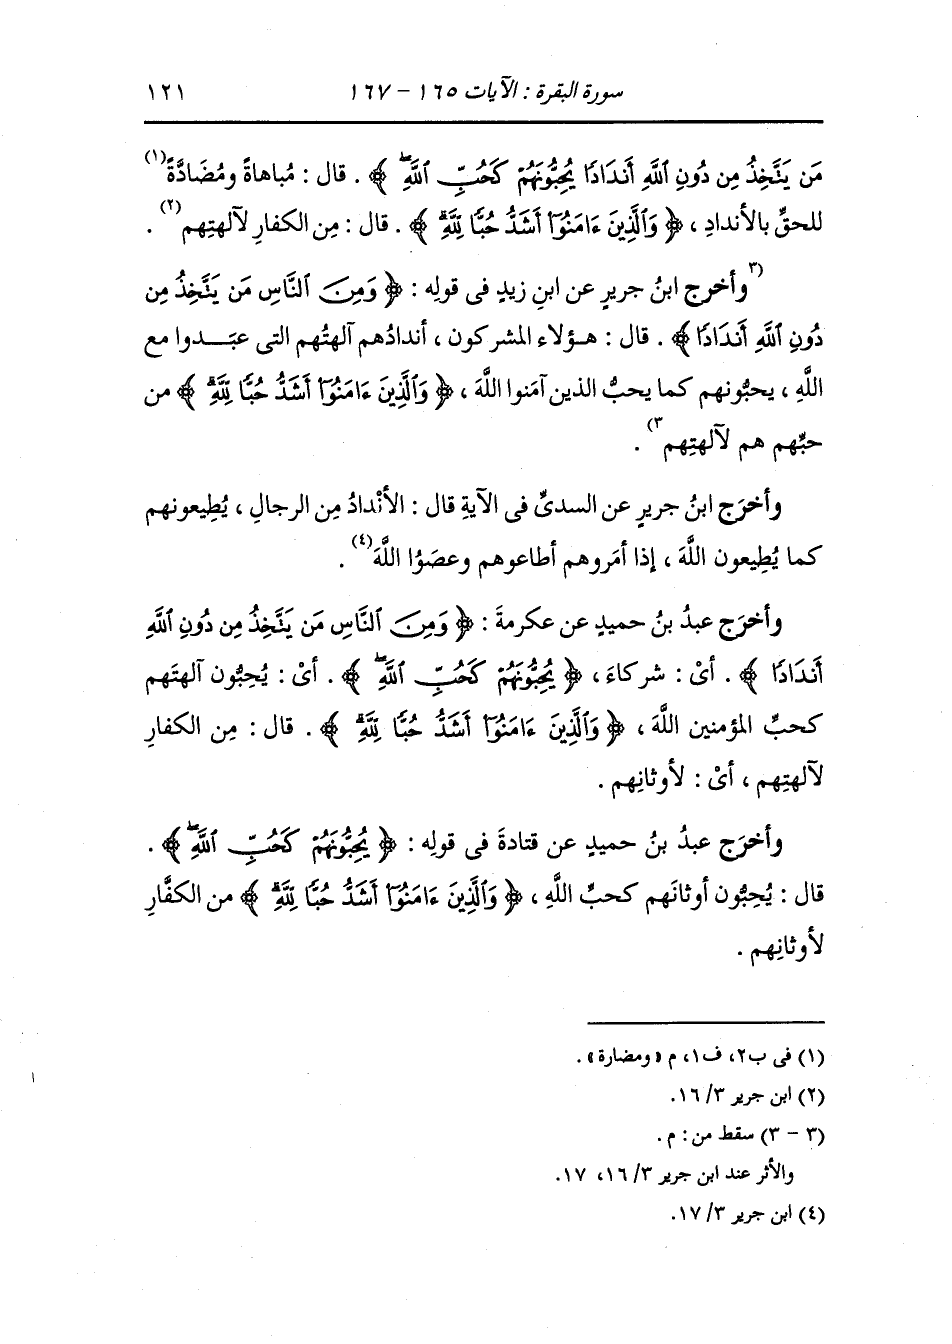 سورة البقرة : الآيات ١٦٥ – ١٦٧ ١٢١
مَن يَتَّخِذُ مِن دُونِ ٱللَّهِ أَندَادًا يُحِبُّونَهُمْ كَحُبِّ ٱللَّهِۖ ﴾ . قال : مُباهاةً ومُضَادَّةً(١)
للحقِّ بالأندادِ ، ﴿ وَٱلَّذِينَ ءَامَنُوٓا۟ أَشَدُّ حُبًّا لِلَّهِۗ ﴾ . قال : مِن الكفارِ لآلهتِهم(٢) .
(٣وأخرج ابنُ جريرٍ عن ابنِ زيدٍ فى قولِه : ﴿ وَمِنَ ٱلنَّاسِ مَن يَتَّخِذُ مِن
دُونِ ٱللَّهِ أَندَادًا ﴾ . قال : هؤلاء المشركون ، أندادُهم آلهتُهم التى عبَدوا مع
اللَّهِ ، يحبُّونهم كما يحبُّ الذين آمَنوا اللَّهَ ، ﴿ وَٱلَّذِينَ ءَامَنُوٓا۟ أَشَدُّ حُبًّا لِلَّهِۗ ﴾ من
حبِّهم هم لآلهتِهم٣) .
وأخرَج ابنُ جريرٍ عن السدىِّ فى الآيةِ قال : الأنْدادُ مِن الرجالِ ، يُطِيعونهم
كما يُطِيعون اللَّهَ ، إذا أمَروهم أطاعوهم وعصَوُا اللَّهَ(٤) .
وأخرَج عبدُ بنُ حميدٍ عن عكرمةَ : ﴿ وَمِنَ ٱلنَّاسِ مَن يَتَّخِذُ مِن دُونِ ٱللَّهِ
أَندَادًا ﴾ . أىْ : شركاءَ ، ﴿ يُحِبُّونَهُمْ كَحُبِّ ٱللَّهِۖ ﴾ . أىْ : يُحِبُّون آلهتَهم
كحبِّ المؤمنين اللَّهَ ، ﴿ وَٱلَّذِينَ ءَامَنُوٓا۟ أَشَدُّ حُبًّا لِلَّهِۗ ﴾ . قال : مِن الكفارِ
لآلهتِهم ، أىْ : لأوثانِهم .
وأخرَج عبدُ بنُ حميدٍ عن قتادةَ فى قولِه : ﴿ يُحِبُّونَهُمْ كَحُبِّ ٱللَّهِۖ ﴾ .
قال : يُحِبُّون أوثانَهم كحبِّ اللَّهِ ، ﴿ وَٱلَّذِينَ ءَامَنُوٓا۟ أَشَدُّ حُبًّا لِلَّهِۗ ﴾ من الكفَّارِ
لأوثانِهم .
(١) فى ب٢، ف١، م «ومضارة» .
(٢) ابن جرير ٣/ ١٦.
(٣ – ٣) سقط من : م .
والأثر عند ابن جرير ٣/ ١٦، ١٧.
(٤) ابن جرير ٣/ ١٧.